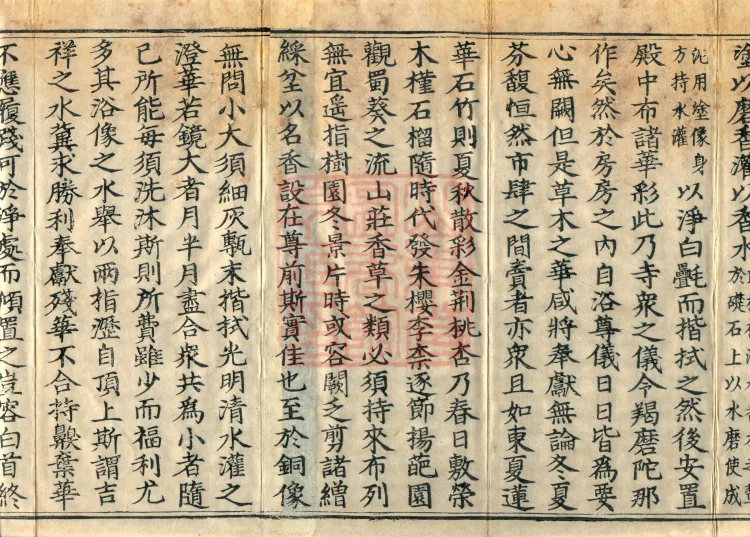 塗以磨香灌以香水於礎石上以水磨使成
泥用塗像身方持水灌以淨白㲲而揩拭之然後安置
殿中布諸華彩此乃寺衆之儀令羯磨陀那
作矣然於房房之內自浴尊儀日日皆爲要
心無闕但是草木之華咸將奉獻無論冬夏
芬馥恒然市肆之間賣者亦衆且如東夏蓮
華石竹則夏秋散彩金荊桃杏乃春日敷榮
木槿石榴隨時代發朱櫻李柰逐節揚葩園
觀蜀葵之流山莊香草之類必須持來布列
無宜遥指樹園冬景片時或容闕之剪諸繒
綵坌以名香設在尊前斯實佳也至於銅像
無問小大須細灰甎末揩拭光明清水灌之
澄華若鏡大者月半月盡合衆共爲小者隨
己所能每須洗沐斯則所費雖少而福利尤
多其浴像之水舉以兩指瀝自頂上斯謂吉
祥之水冀求勝利奉獻殘華不合持齅棄華
不應履踐可於淨處而傾置之豈容白首終